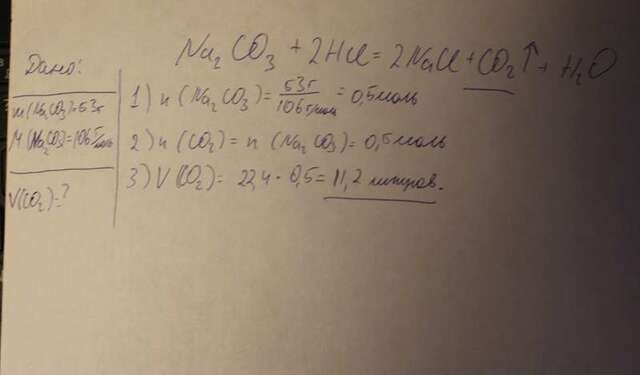 Na₂CO₃ + 2HCl = 2NaCl + CO₂↑ + H₂O
Дано:
m(Na₂CO₃)=53г
M(Na₂CO₃)=106г/моль
V(CO₂)=?
1) n(Na₂CO₃)= 53г/106г/моль = 0,5моль
2) n(CO₂)= n(Na₂CO₃)= 0,5моль
3) V(CO₂)= 22,4 · 0,5= 11,2 литров.